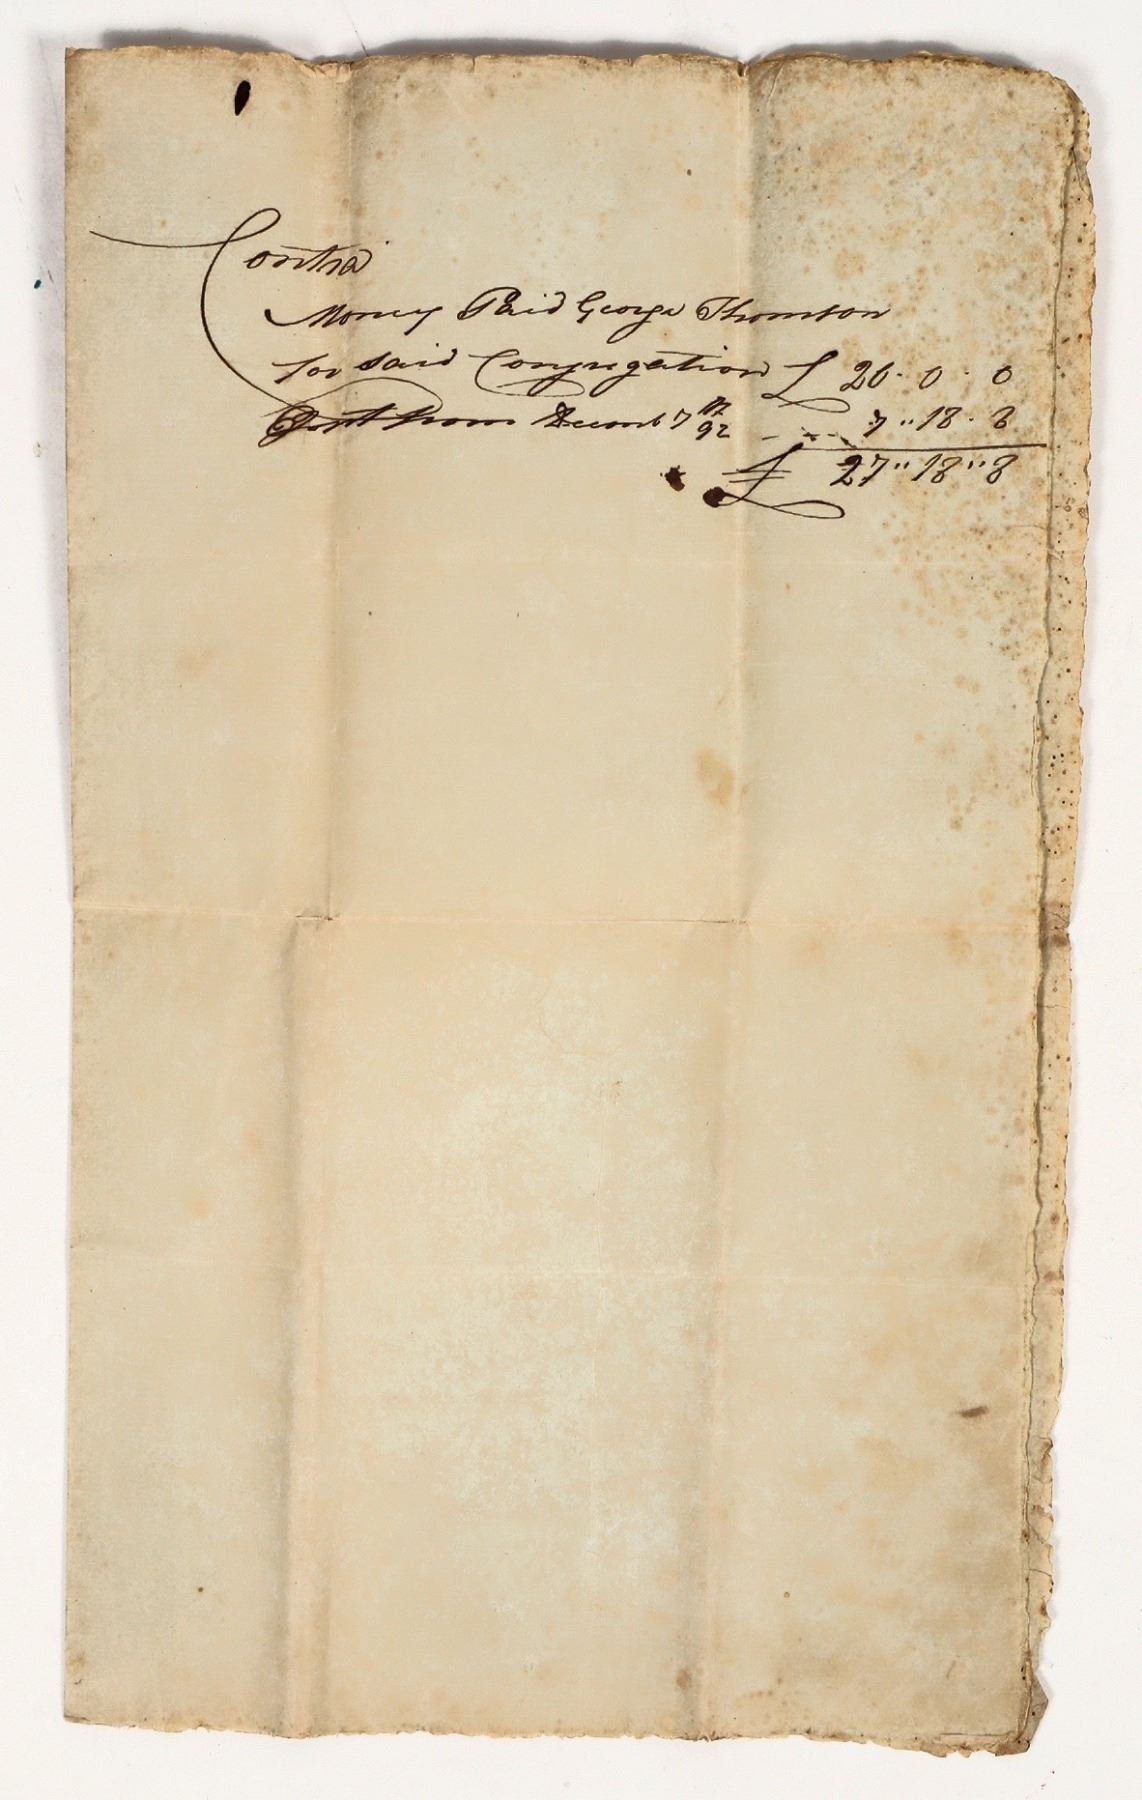 Contra
Money Paid George Thomson
for said Congregation £ 20 . 0 . 0
from Decemb 7th 92 - - - 7 " 18 . 8
£ 27 " 18 " 8